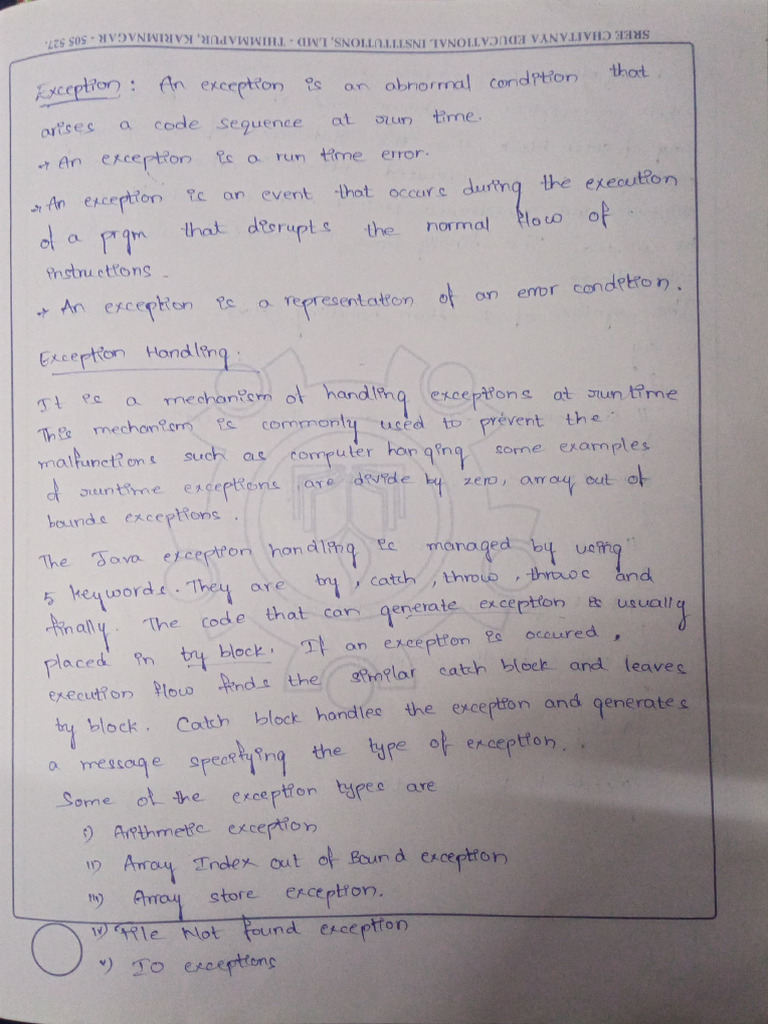 SREE CHAITANYA EDUCATIONAL INSTITUTIONS, LMD - THIMMAPUR, KARIMNAGAR - 505 527.
Exception : An exception is an abnormal condition that
arises a code sequence at run time.
→ An exception is a run time error.
→ An exception is an event that occurs during the execution
of a prgm that disrupts the normal flow of
instructions.
→ An exception is a representation of an error condition.
Exception Handling.
It is a mechanism of handling exceptions at runtime
This mechanism is commonly used to prevent the
malfunctions such as computer hanging some examples
of runtime exceptions are divide by zero, array out of
bounds exceptions.
The Java exception handling is managed by using
5 keywords. They are try, catch, throw, throws and
finally. The code that can generate exception is usually
placed in try block. If an exception is occured,
execution flow finds the similar catch block and leaves
try block. Catch block handles the exception and generates
a message specifying the type of exception.
Some of the exception types are
i) Arithmetic exception
ii) Array Index out of Bound exception
iii) Array store exception.
iv) File Not found exception
v) IO exceptions